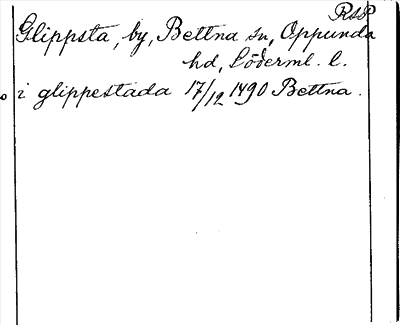 RSP
Glippsta, by, Bettna sn, Oppunda
hd, Söderml. l.
i glippestada 17/12 1490 Bettna.